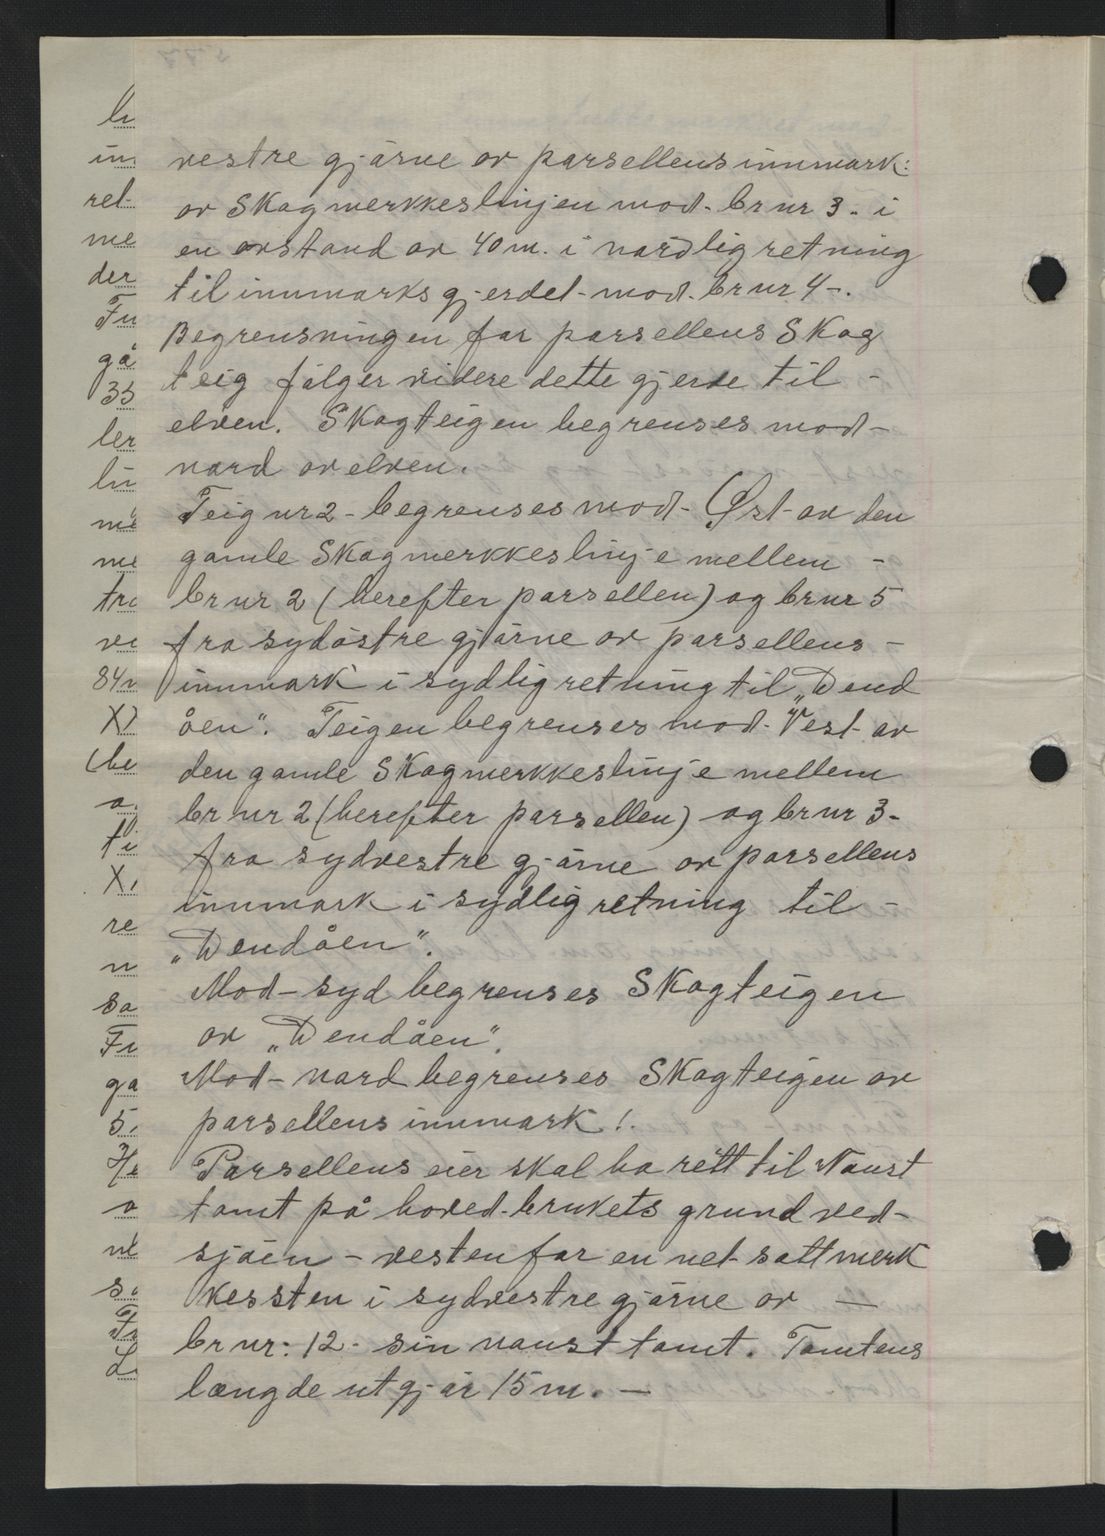 vestre gjørne av parsellens innmark:
av Skogmerkkeslinjen mod. br nr 3. i
en avstand av 40 m. i nordlig retning
til innmarksgjerdet - mod. br nr 4 -.
Begrensningen for parsellens Skog
teig følger videre dette gjerde til -
elven. Skogteigen begrenses mod -
nord av elven.
Teig nr 2 - begrenses mod - Øst - av den
gamle Skogmerkkeslinje mellem -
br nr 2 (herefter parsellen) og br nr 5
fra sydøstre gjørne av parsellens -
innmark i sydlig retning til „Dend
åen“. Teigen begrenses mod - Vest av
den gamle Skogmerkkeslinje mellem
br nr 2 (herefter parsellen) og br nr 3 -
fra sydvestre gjørne av parsellens
innmark i sydlig retning til -
„Dendåen“.
Mod - syd begrenses Skogteigen
av „Dendåen“.
Mod - nord begrenses Skogteigen av
parsellens innmark !.
Parsellens eier skal ha rett til Naust
tomt på hoved-brukets grund ved -
sjøen - vestenfor en net satt merk
kessten i sydvestre gjørne av —
br nr: 12 - sin nausttomt. Tomtens
længde utgjør 15 m. —
in
ret-
me
der
Fu
gå
35
ler
li
me
me
tra
ve
84
X)
(he
a
ti
X
re
n
sa
F
ga
5.
He
a
ne
s